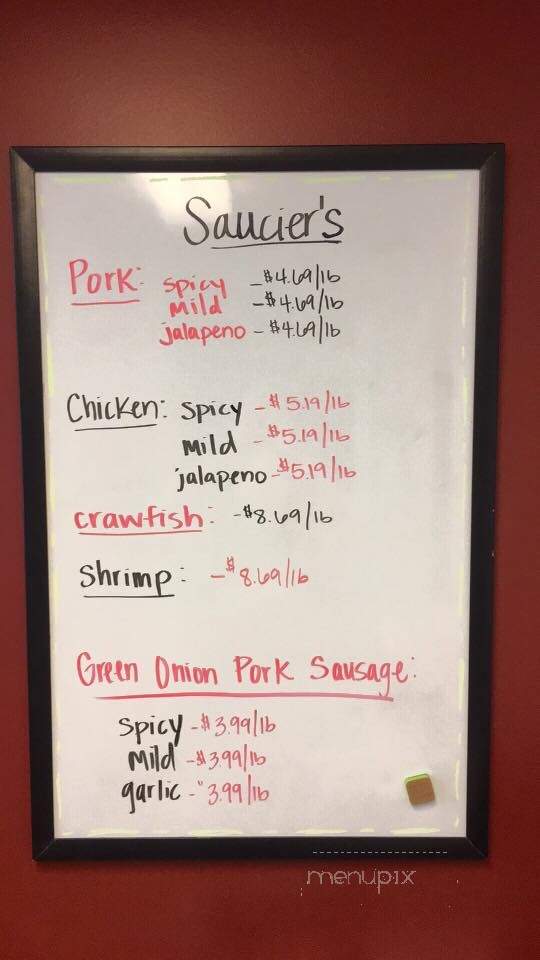 Saucier's
Pork: spicy - $4.69/lb
Mild - $4.69/lb
jalapeno - $4.69/lb
Chicken: spicy - $5.19/lb
mild - $5.19/lb
jalapeno - $5.19/lb
crawfish: - $8.69/lb
Shrimp: - $8.69/lb
Green Onion Pork Sausage:
Spicy - $3.99/lb
Mild - $3.99/lb
garlic - " 3.99/lb
menupix